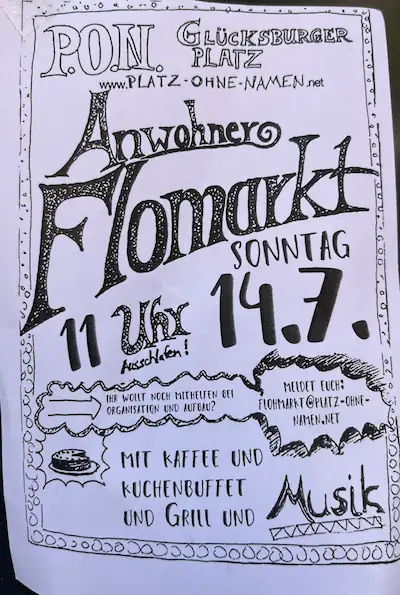 P.O.N.
GLÜCKSBURGER
PLATZ
www.PLATZ-OHNE-NAMEN.net
Anwohner
Flomarkt
SONNTAG
14.7.
11 Uhr
Ausschlafen!
IHR WOLLT NOCH MITHELFEN BEI
ORGANISATION UND AUFBAU?
MELDET EUCH:
FLOHMARKT@PLATZ-OHNE-
NAMEN.NET
MIT KAFFEE UND
KUCHENBUFFET
UND GRILL UND
Musik